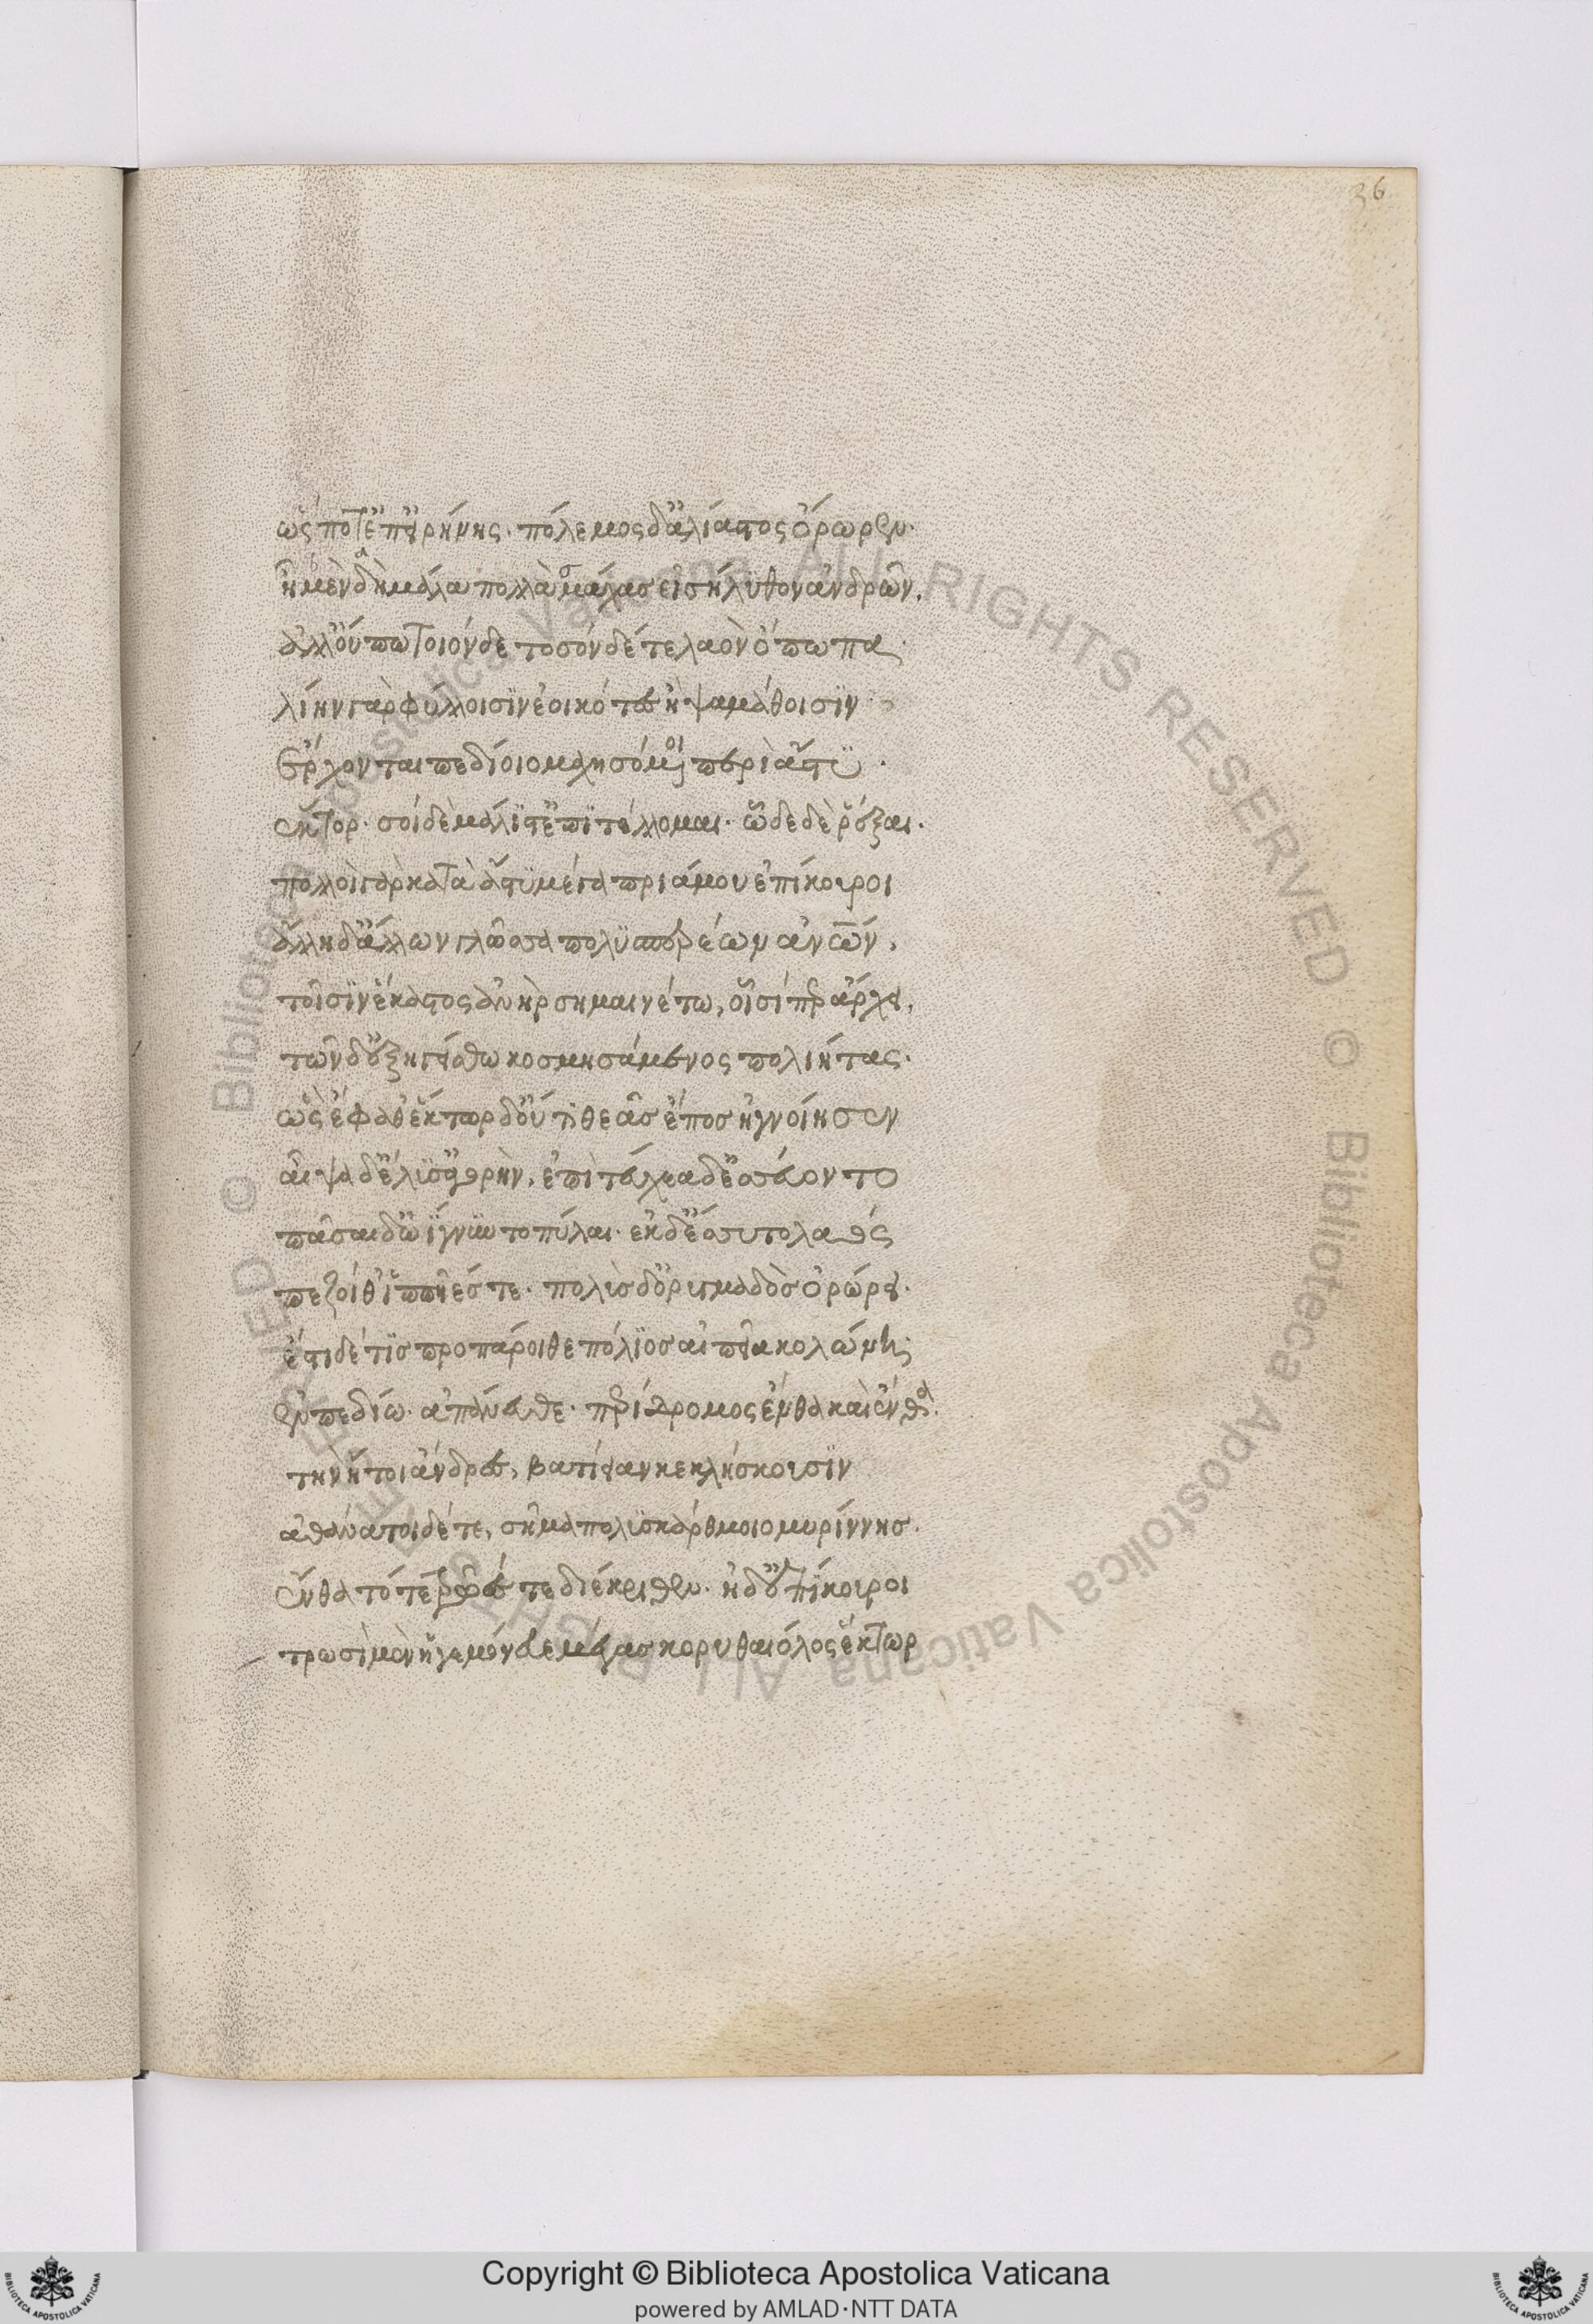 36
ὥς ποτ' ἐπ' εἰρήνης· πόλεμος δ' ἀλίαστος ὄρωρεν·
ἢ μὲν δὴ μάλα πολλὰ μάχας εἰσήλυθον ἀνδρῶν,
ἀλλ' οὔπω τοιόνδε τοσόνδέ τε λαὸν ὄπωπα·
λίην γὰρ φύλλοισιν ἐοικότες ἢ ψαμάθοισιν
ἔρχονται πεδίοιο μαχησόμενοι περὶ ἄστυ·
ἕκτορ· σοὶ δὲ μάλιστ' ἐπιτέλλομαι· ὧδε δὲ ῥέξαι·
πολλοὶ γὰρ κατὰ ἄστυ μέγα πριάμου ἐπίκουροι
ἄλλη δ' ἄλλων γλῶσσα πολυσπερέων ἀνων,
τοῖσιν ἕκαστος ἀνὴρ σημαινέτω, οἷσί περ ἄρχει,
τῶν δ' ἐξηγείσθω κοσμησάμενος πολιήτας·
ὣς ἔφαθ' ἕκτωρ δ' οὔτι θεᾶς ἔπος ἠγνοίησεν
αἶψα δ' ἔλυσ' ἀγορὴν, ἐπὶ τεύχεα δ' ἐσσεύοντο
πᾶσαι δ' ὠίγνυντο πύλαι· ἐκ δ' ἔσσυτο λαός
πεζοί θ' ἱππῆές τε· πολὺς δ' ὀρυμαγδὸς ὀρώρει·
ἔστι δέ τις προπάροιθε πόλιος αἰπεῖα κολώνη·
ἐν πεδίω ἀπάνευθε· περίδρομος ἔνθα καὶ ἔνθα·
τὴν ἤτοι ἄνδρες, βατίειαν κεκλήσκουσιν
ἀθάνατοι δέ τε, σῆμα πολυσκάρθμοιο μυρίννης·
ἔνθα τότε τρῶές τε διέκριθεν· ἠδ' ἐπίκουροι
τρωσὶ μὲν ἡγεμόνευε μέγας κορυθαιόλος ἕκτωρ
Copyright © Biblioteca Apostolica Vaticana
powered by AMLAD·NTT DATA